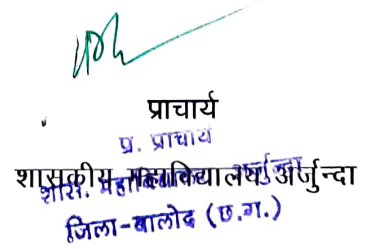 प्राचार्य
प्र. प्राचार्य
शासकीय महाविद्यालय अर्जुन्दा
शास. महाविद्यालय अर्जुन्दा
जिला-बालोद (छ.ग.)